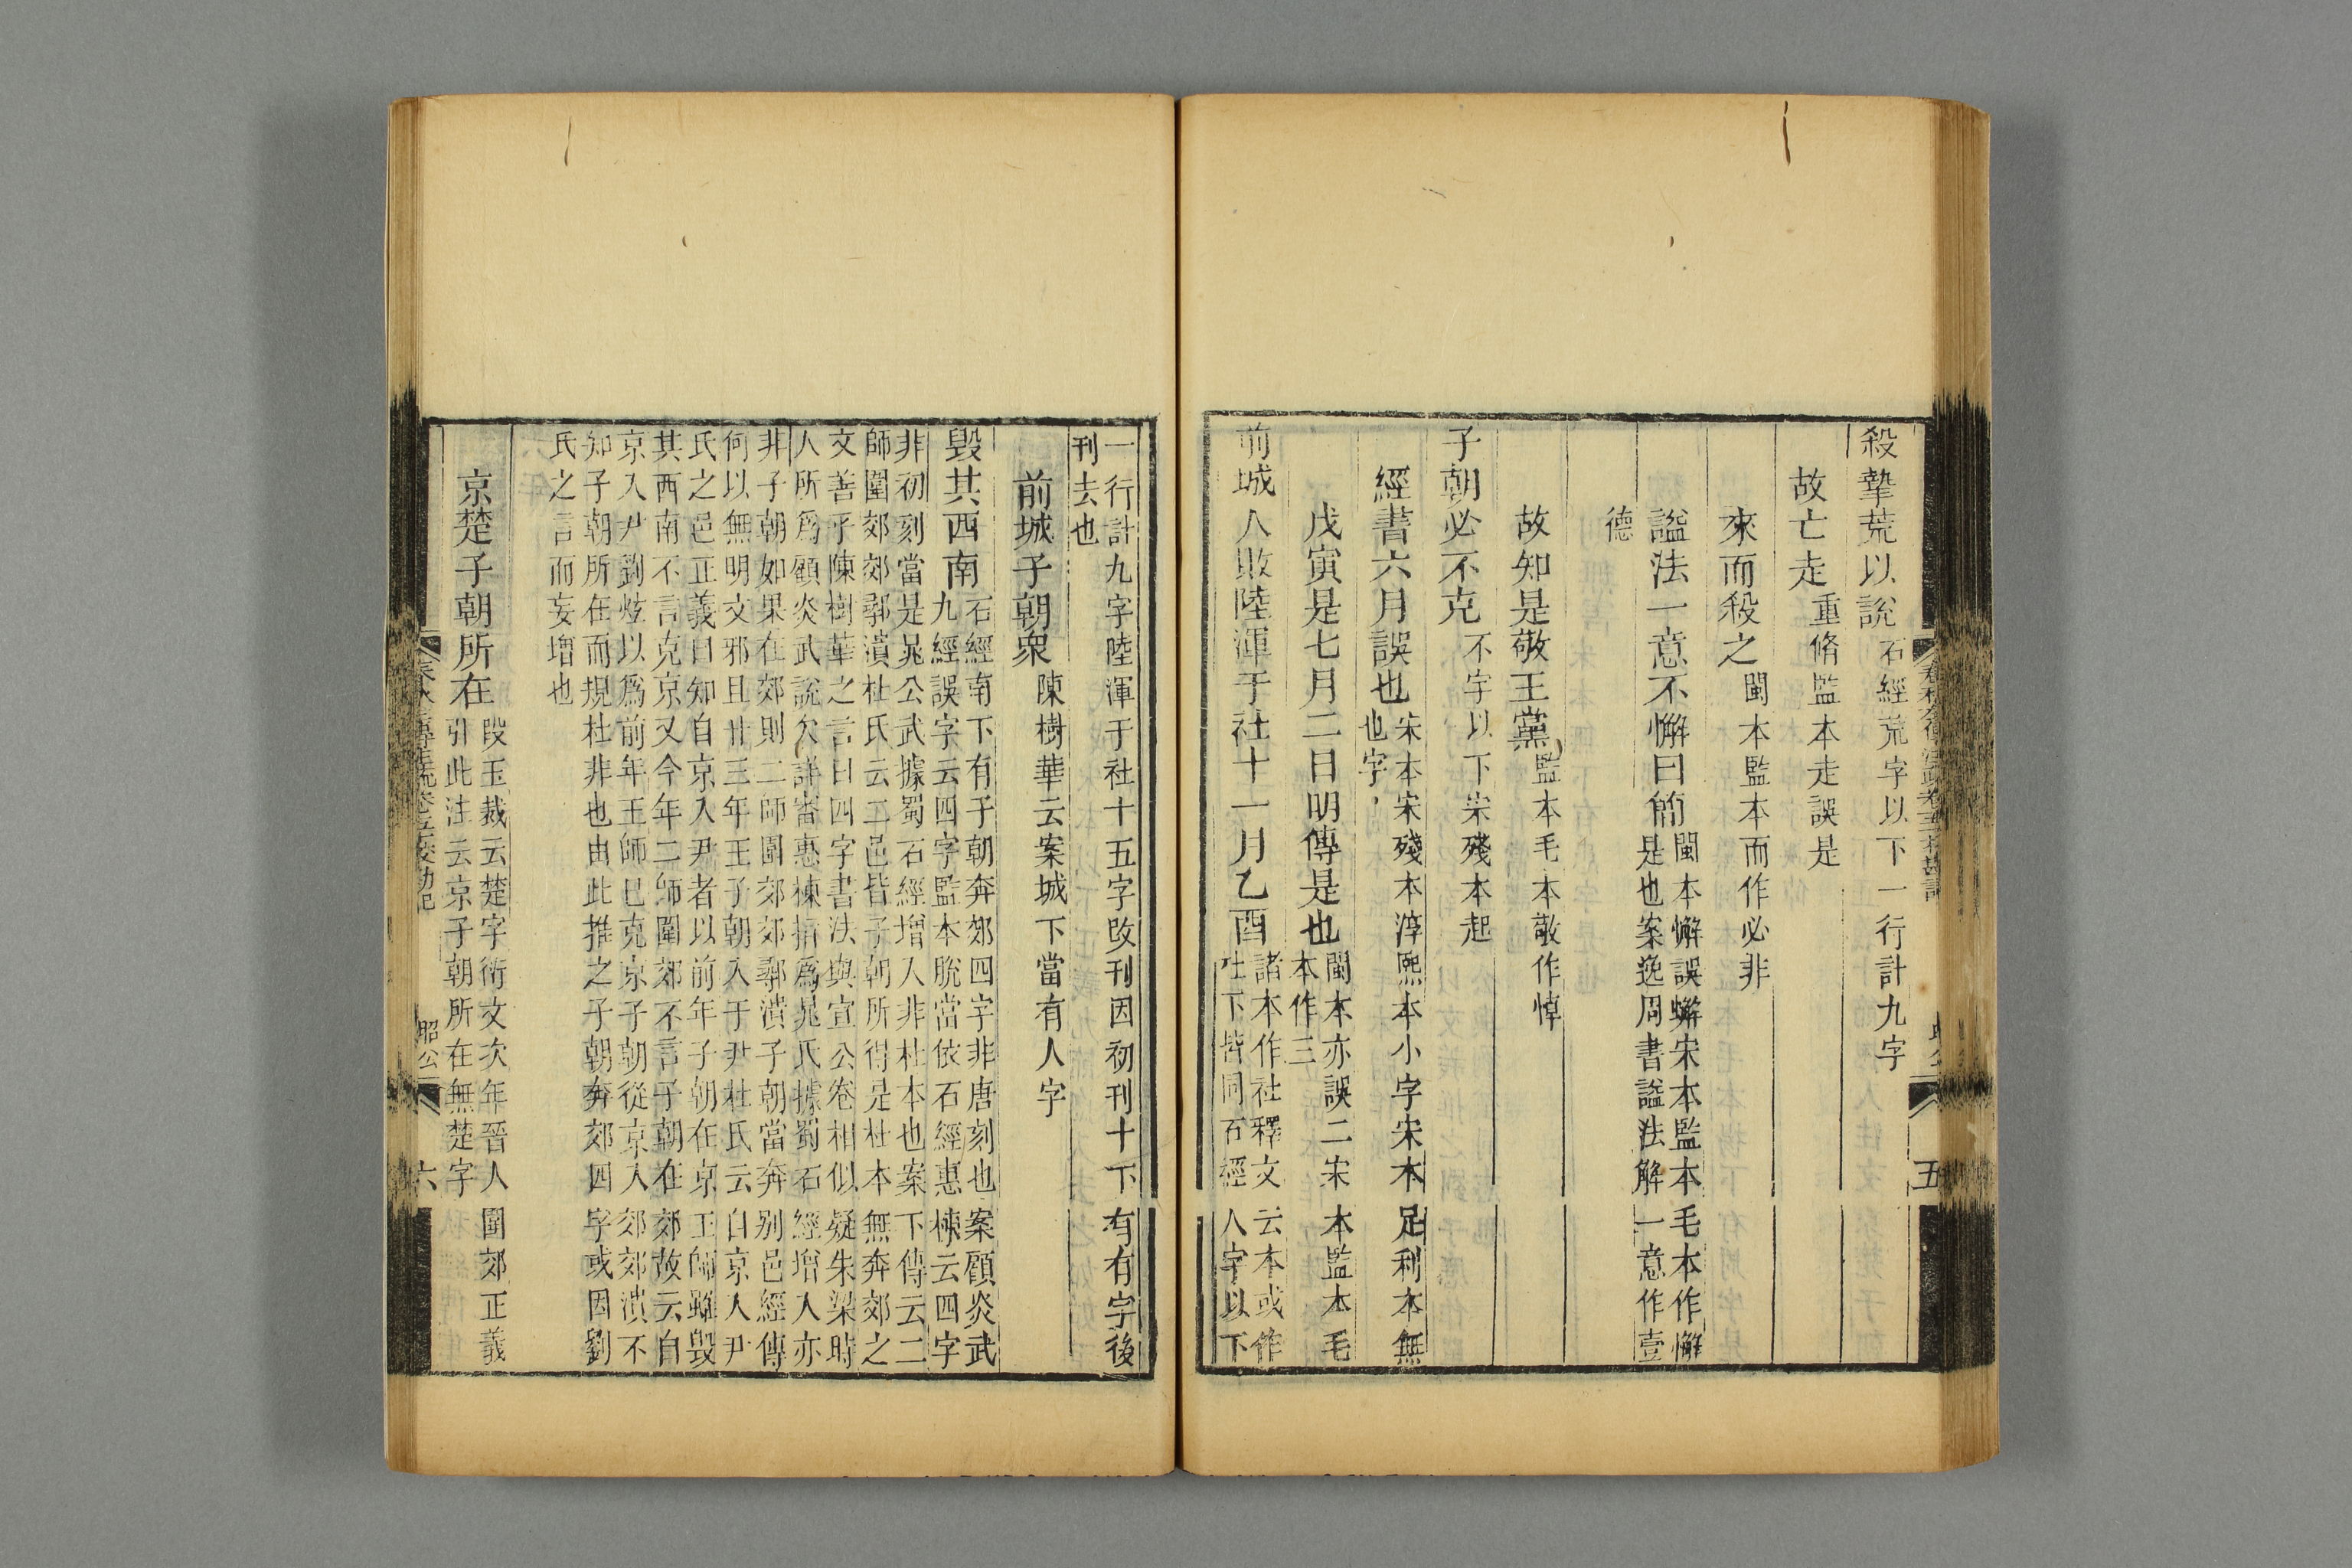 殺摯荒以說石經荒字以下一行計九字
故亡走重脩監本走誤是
來而殺之閩本監本而作必非
謚法一意不懈曰簡閩本懈誤㡿宋本監本毛本作懈
是也案逸周書謚法解一意作壹
德
故知是敬王黨監本毛本敬作悼
子朝必不克不字以下宋殘本起
經書六月誤也宋本宋殘本淳熙本小字宋本足利本無
也字
戊寅是七月二日明傳是也閩本亦誤二宋本監本毛
本作三
前城人敗陸渾于社十一月乙酉諸本作社釋文云本或作
社下皆同石經人字以下
一行計九字陸渾于社十五字改刊因初刊十下有有字後
刊去也
前城子朝衆陳樹華云案城下當有人字
毀其西南石經南下有子朝奔郊四字非唐刻也案顧炎武
九經誤字云四字監本脫當依石經惠棟云四字
非初刻當是晁公武據蜀石經增入非杜本也案下傳云二
師圍郊郊鄩潰杜氏云二邑皆子朝所得是杜本無奔郊之
文善乎陳樹華之言曰四字書法與宣公卷相似疑朱梁時
人所爲顧炎武說欠詳審惠棟指爲晁氏據蜀石經增入亦
非子朝如果在郊則二師圍郊郊鄩潰子朝當奔別邑經傳
何以無明文邪且廿三年王子朝入于尹杜氏云自京入尹
氏之邑正義曰知自京入尹者以前年子朝在京王師雖毀
其西南不言克京又今年二師圍郊不言子朝在郊故云自
京入尹劉炫以爲前年王師已克京子朝從京入郊郊潰不
知子朝所在而規杜非也由此推之子朝奔郊四字或因劉
氏之言而妄增也
京楚子朝所在段玉裁云楚字衍文次年晉人圍郊正義
引此注云京子朝所在無楚字
昭公
六
五